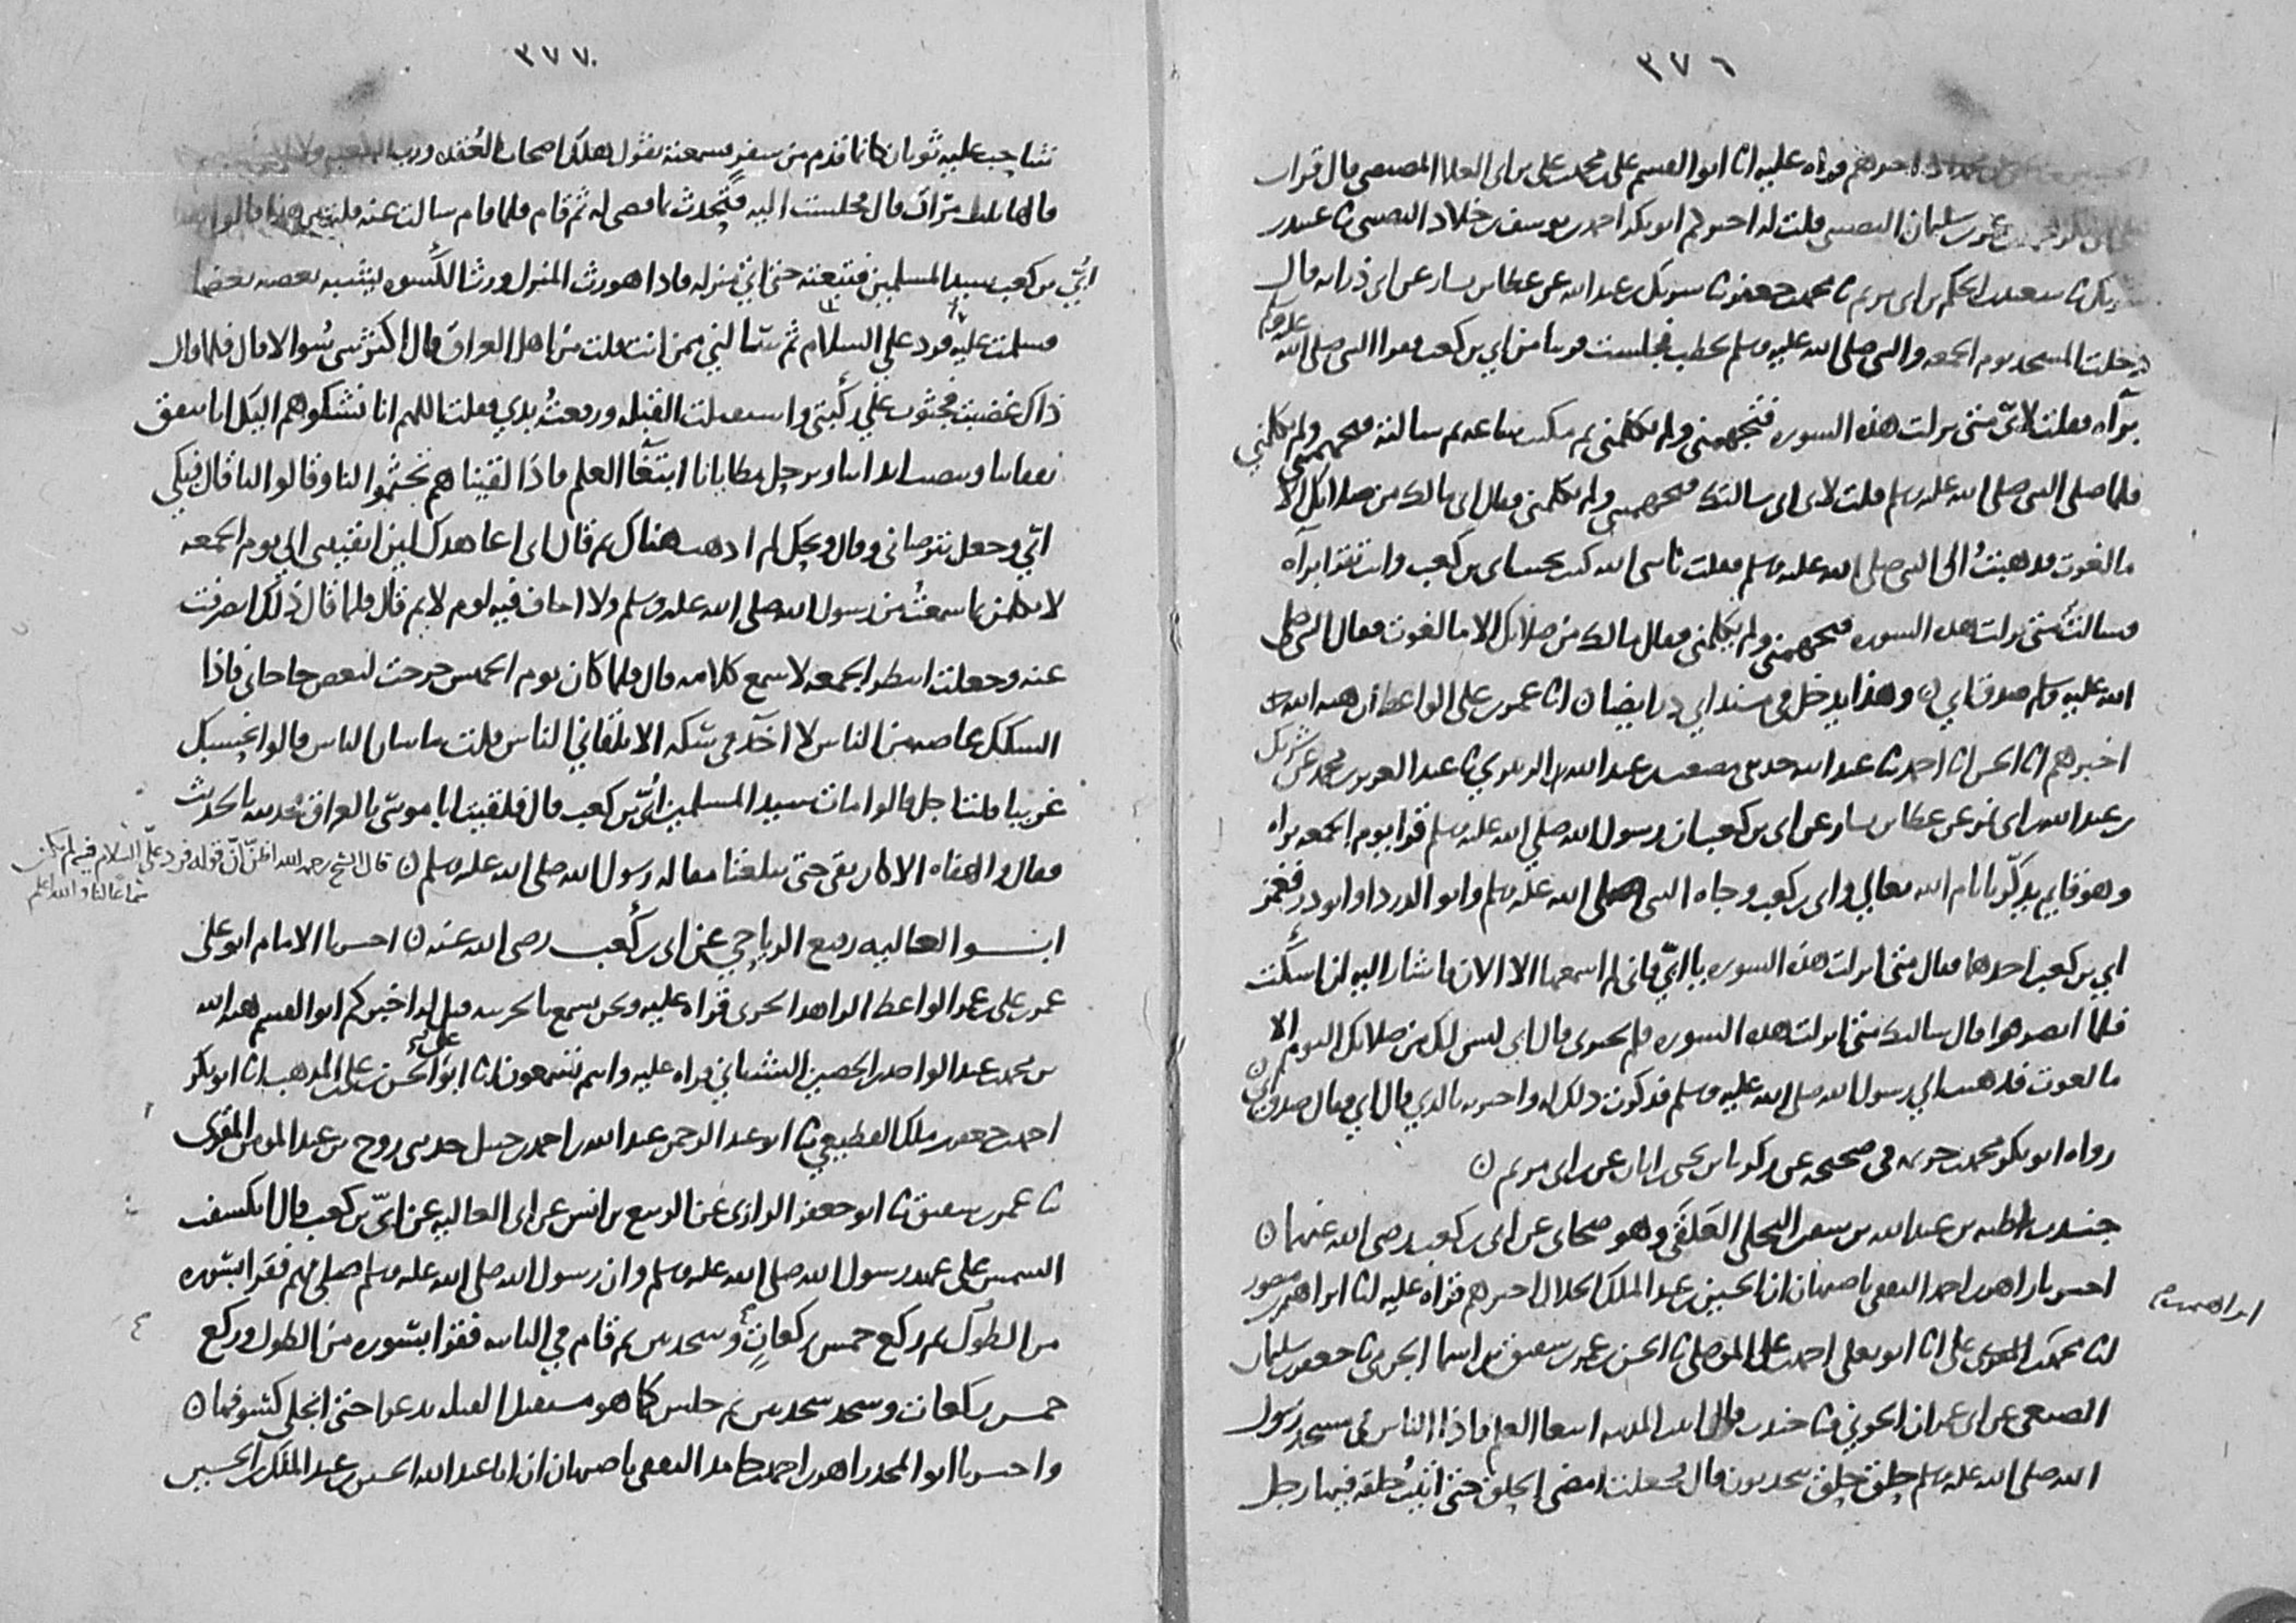 ٣٧٦
اخبرهم قراه عليه انا ابو القسم علي بن محمد بن علي بن ابي العلا المصيصي قال قرات
بن سليمان النصيبي قلت له اخبركم ابو بكر احمد بن يوسف بن خلاد النصيبي نا عبيد بن
شريك نا سعيد بن الحكم بن ابي مريم نا محمد بن جعفر نا شريك بن عبد الله عن عطا بن يسار عن ابي ذر انه قال
دخلت المسجد يوم الجمعه والنبي صلى الله عليه وسلم يخطب فجلست قريبا من ابي بن كعب فقرا النبي صلى الله عليه وسلم
برآه فقلت لابيّ متى نزلت هذه السوره فتجهمني ولم يكلمني ثم مكثت ساعه ثم سالته فتجهمني ولم يكلمني
فلما صلى النبي صلى الله عليه وسلم قلت لابي اني سالتك فتجهمتني ولم تكلمني فقال ابي مالك من صلاتك الا
ما لغوت فذهبتُ الى النبي صلى الله عليه وسلم فقلت يا نبي الله كنت بجنب ابي بن كعب وانت تقرا برآه
فسالته متى نزلت هذه السوره فتجهمني ولم يكلمني فقال مالك من صلاتك الا ما لغوت فقال النبي صلى
الله عليه وسلم صدق ابي ن وهذا يدخل في مسند ابي ذر ايضا ن انا عمر بن علي الواعظ ان هبه الله
اخبرهم انا الحسن انا احمد نا عبد الله حدثني مصعب بن عبد الله الزبيري نا عبد العزيز بن محمد عن شريك
بن عبد الله بن ابي نمر عن عطا بن يسار عن ابي بن كعب ان رسول الله صلى الله عليه وسلم قرا يوم الجمعه براه
وهو قايم يذكّر بايام الله تعالى وابي بن كعب وجاه النبي صلى الله عليه وسلم وابو الدردا وابو ذر فغمز
ابي بن كعب احدهما فقال متى انزلت هذه السوره يا ابيّ فاني لم اسمعها الا الان فاشار اليه ان اسكت
فلما انصرفوا قال سالتك متى انزلت هذه السوره فلم تخبرني قال ابي ليس لك من صلاتك اليوم الا
ما لغوت فذهبت الى رسول الله صلى الله عليه وسلم فذكرت ذلك له واخبرته بالذي قال ابي فقال صدق ابي ن
رواه ابو بكر محمد بن خزيمه في صحيحه عن زكريا بن يحيى بن ابان عن ابن ابي مريم ن
جندب بن عبد الله بن سفين البجلي العَلَقي وهو صحابي عن ابي بن كعب رضي الله عنهما ن
اخبرنا زاهر بن احمد الثقفي باصبهان ان الحسين بن عبد الملك الخلال اخبرهم قراه عليه انا ابراهيم بن منصور
ابراهيم
انا محمد بن ابراهيم بن علي انا ابو يعلى احمد بن علي الموصلي نا الحسن بن عمر بن شقيق بن اسما الجرمي نا جعفر بن سليمان
الضبعي عن ابي عمران الجوني نا جندب قال اتيت المدينه ابتغا العلم فاذا الناس في مسجد رسول
الله صلى الله عليه وسلم حلق حلق يتحدثون قال فجعلت امضي الحلق حتى اتيت حلقه فيها رجل
٣٧٧
شاحب عليه ثوبان كانما قدم من سفر فسمعته يقول هلك اصحاب العُقَد ورب الكعبه ولا
قالها ثلث مرات قال فجلست اليه فتحدث بما قضي له ثم قام فلما قام سالت عنه قلت من هذا قالوا هذا
ابيّ بن كعب سيد المسلمين فتبعته حتى اتى منزله فاذا هو رث المنزل ورث الكسوه يشبه بعضه بعضا
فسلمت عليه فرد علي السلام ثم سالني ممن انت قلت من اهل العراق قال اكثر شي سُوالا قال فلما قال
ذاك غضبت فجثوت علي ركبتي واستقبلت القبله ورفعتُ يدي فقلت اللهم انا نشكوهم اليك انا ننفق
نفقاتنا وننصب ابداننا ونرحل مطايانا ابتغا العلم فاذا لقيناهم تجهموا لنا وقالوا لنا قال فبكى
ابيّ وجعل يترضاني وقال ويحك لم اذهب هناك ثم قال اني اعاهدك لين ابقيتني الي يوم الجمعه
لاتكلمن بما سمعتُ من رسول الله صلى الله عليه وسلم ولا اخاف فيه لوم لايم قال فلما قال ذلك انصرفت
عنه وجعلت انتظر الجمعه لاسمع كلامه قال فلما كان يوم الخميس خرجت لبعض حاجاتي فاذا
السكك غاصه من الناس لا اخذ في سكه الا تلقاني الناس قلت ما شان الناس قالوا نحسبك
غريبا قلت اجل قالوا مات سيد المسلمين ابيّ بن كعب قال فلقيت ابا موسى بالعراق فحدثته بالحديث
فقال والهفاه الا كان بقي حتى تبلغنا مقاله رسول الله صلى الله عليه وسلم ن قال الشيخ رحمه الله اظنّ انّ قوله فرد عليّ السلام فيه لم يكن
سماعا لنا والله اعلم
ابو العاليه رفيع الرياحي عن ابي بن كعب رضي الله عنه ن اخبرنا الامام ابو علي
عمر بن علي بن عمر الواعظ الزاهد الحربي قراه عليه ونحن نسمع بالحربيه قيل له اخبركم ابو القسم هبه الله
بن محمد بن عبد الواحد بن الحصين الشيباني قراه عليه وانتم تسمعون انا ابو علي الحسن بن علي بن المذهب انا ابو بكر
احمد بن جعفر بن ملك القطيعي نا ابو عبد الرحمن عبد الله بن احمد بن حنبل حدثني روح بن عبد المومن المقري
نا عمر بن شقيق نا ابو جعفر الرازي عن الربيع بن انس عن ابي العاليه عن ابيّ بن كعب قال انكسفت
الشمس على عهد رسول الله صلى الله عليه وسلم وان رسول الله صلى الله عليه وسلم صلى بهم فقرا بسوره
من الطول ثم ركع خمس ركعات وسجدتين ثم قام في الثانيه فقرا بسوره من الطول وركع
خمس ركعات وسجد سجدتين ثم جلس كما هو مستقبل القبله يدعوا حتى انجلى كسوفها ن
واخبرنا ابو المجد زاهر بن احمد بن حامد الثقفي باصبهان ان ابا عبد الله الحسين بن عبد الملك بن الحسين